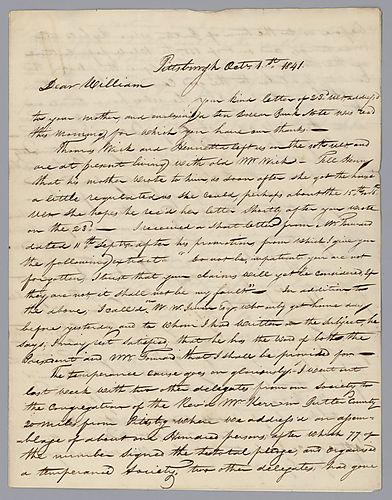 Pittsburgh Octr 1st 1841.
Dear William
Your kind letter of 23d ult addressd
to your mother and enclosing a ten Dollar Bank Note was recd
this morning for which you have our thanks—
Thomas Wick and Henrietta left us on the 10th ult and
are at present living with old Mr Wick— Tell Henry
that his mother wrote to him, as soon after she got the house
a little regulated as she could, perhaps about the 15th
ulto she hopes he recd her letter shortly after you wrote
on the 23d— I received a short letter from Mr
dated 11th Septr after his promotion from which I give you
the following extract "do not be impatient you are not
forgotten, I trust that your claims will yet be considered, if
they are not it shall not be my fault"— In addition to
the above, I called on W. W. Esqr who only got home day
before yesterday and to whom I had written on the subject, he
says, I may rest satisfied, that he has the word of both the
President and Mr that I shall be provided for—
The temperance cause goes on gloriously. I went out
last week with two other delegates from our Society to
the congregation of the Revd Mr in Butler County
20 miles from Pittsbg where we addressd an assem-
blage of about one Hundred persons, after which 77 of
the number signed the teetotal pledge, and organised
a temperance Society, two other delegates had gone